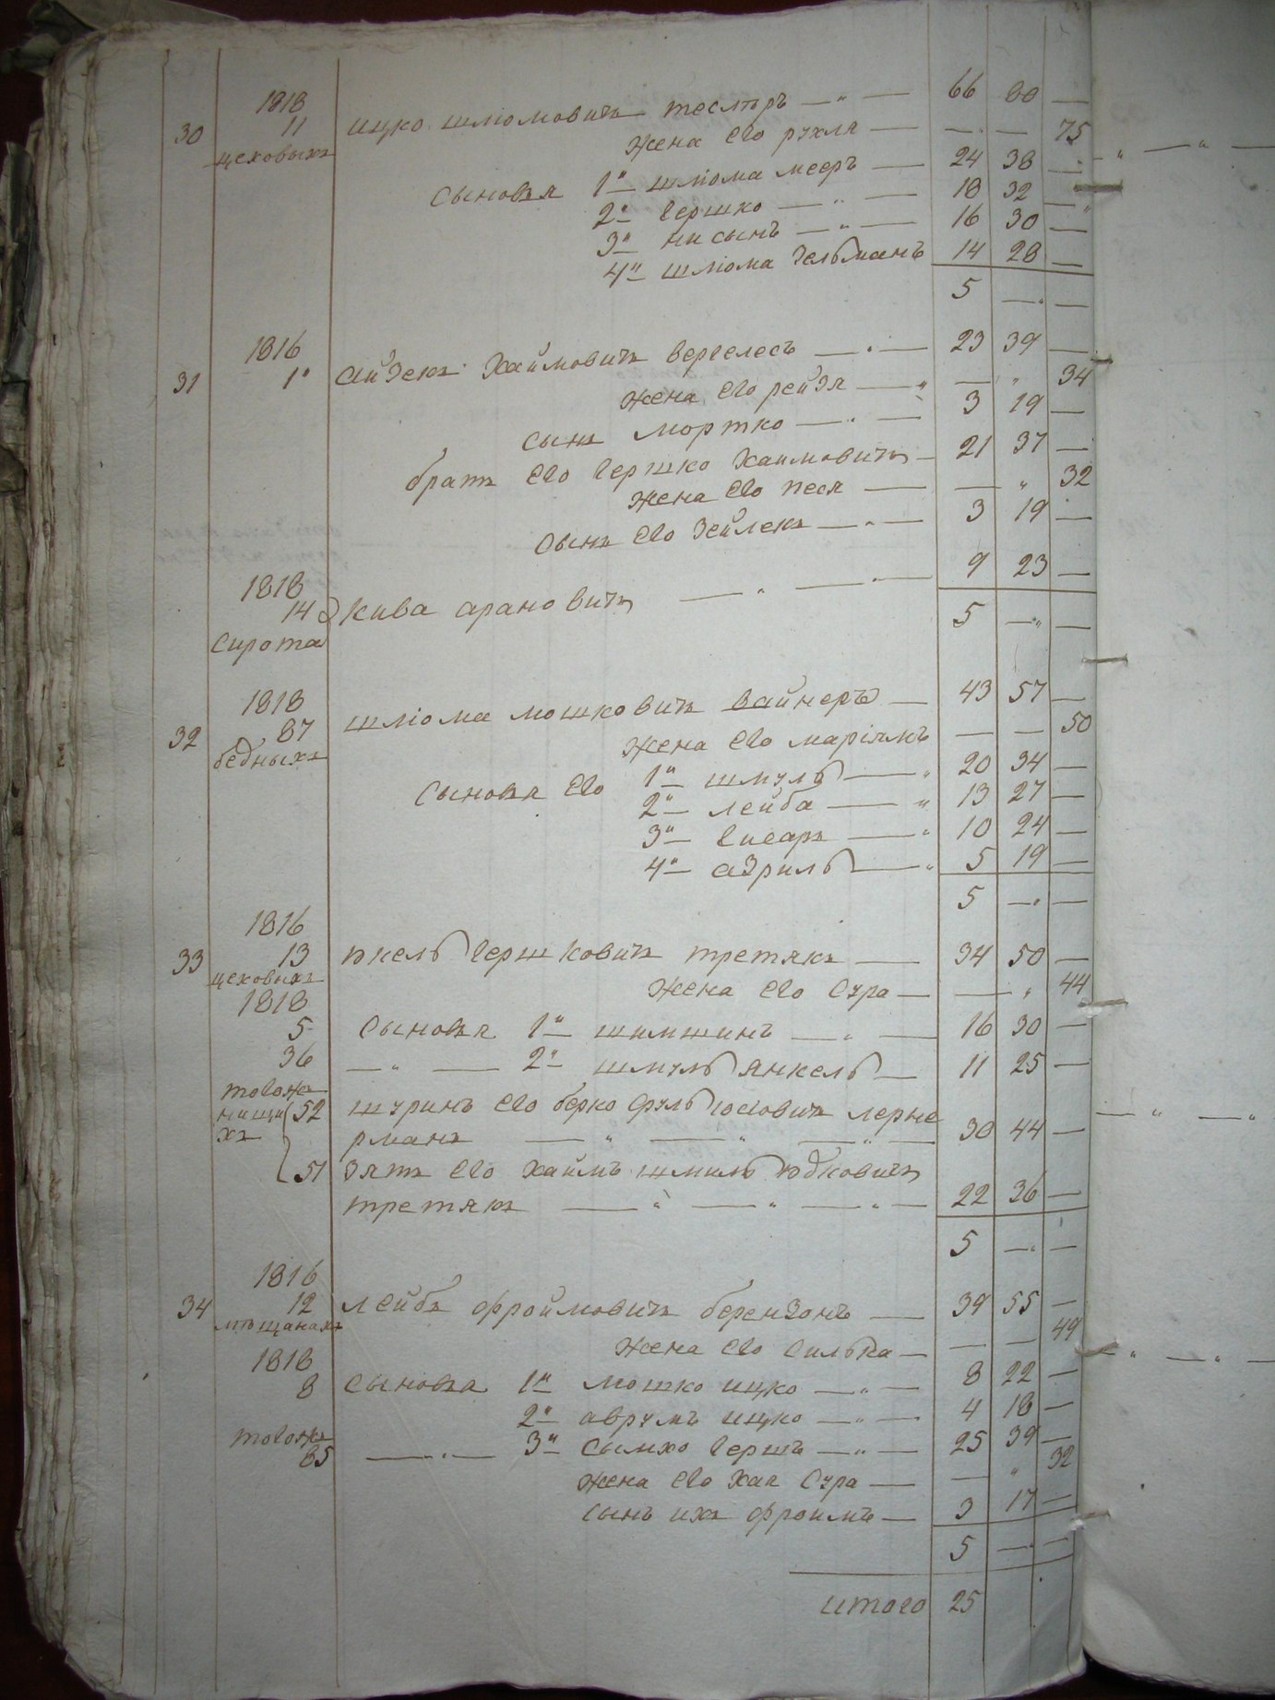 1818
30 11 ицко шліомовичъ теслтръ — " — 66 80 —
цеховыхъ жена его рухля — — . — 75
сыновья 1й шліома мееръ — 24 38 —
2й гершко — " — 18 32 —
3й нисынъ — " — 16 30 —
4й шліома зельманъ 14 28 —
5 — . —
1816
31 1й айзекъ хаймовичъ вергелесъ — . — 23 39 —
жена его рейзя — " — " 34
сынъ мортко — . — 3 19 —
братъ его гершко хаимовичъ — 21 37 —
жена его песя — — " 32
сынъ его зейлекъ — . — 3 19 —
1818 9 23 —
14 кива арановичъ — " — . —
сирота 5 — " —
1818
32 87 шліома мошковичъ вайнеръ — 43 57 —
бедныхъ жена его маріямъ — — 50
сыновья его 1й шмуль — " 20 34 —
2й лейба — " 13 27 —
3й — " 10 24 —
4й азриль — " 5 19 —
5 — . —
1816
33 13 юкель гершковичъ третякъ — 34 50 —
цеховыхъ жена его сура — — " 44
1818
5 сыновья 1й шимшинъ — " — 16 30 —
36 — " — 2й шмуль янкель — 11 25 —
тогожъ
нищихъ 52 шуринъ его берко сруль іосіовичъ лерне
рманъ — " — " — " — 30 44 —
51 зять его хаимъ шмиль юдковичъ
третякъ — " — " — " — 22 36 —
5 — . —
1816
34 12 лейбъ фроймовичъ берензонъ — 39 55 —
мъщанахъ жена его — — — 49
1818
8 сыновья 1й мошко ицко — " — 8 22 —
2й аврумъ ицко — " — 4 18 —
тогожъ
85 — " — 3й сымхо гершъ — " — 25 39 —
жена его хая сура — — " 32
сынъ ихъ фроимъ — 3 17 —
5 — . —
итого 25